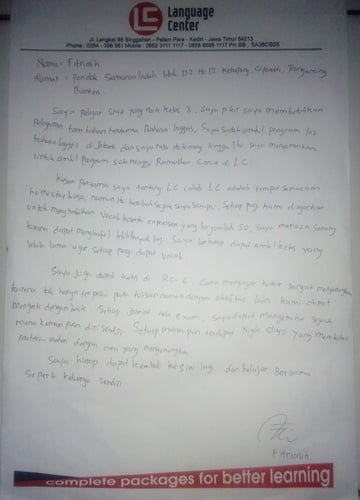 LC
Language
Center
Jl. Langkat 88 Singgahan - Pelem Pare - Kediri - Jawa Timur 64213
Phone : 0354 - 396 961 Mobile : 0852 3111 1117 - 0856 8688 1117 Pin BB :
Nama : Fitriasih
Alamat : Pondok Indah blok D2 No 12 Ketapang, Cipondoh, Tangerang
Banten
Saya pelajar SMA yang naik kelas 3. Saya pikir saya membutuhkan
Pelajaran tambahan terutama Bahasa Inggris, Saya sudah ambil program les
bahasa Inggris di Jakarta dan saya rasa itu kurang hingga Ibu saya menyarankan
untuk ambil program satu minggu Ramadhan Ceria di LC
Kesan pertama saya tentang LC ialah LC adalah tempat semacam
homestay biasa, namun itu berubah sejak saya Setiap pagi kami diajarkan
untuk menghafalkan Vocab beserta expression yang berjumlah 50, saya merasa senang
karena dapat menghafal Saya berharap dapat ambil kelas yang
lebih lama agar setiap pagi dapat Vocab
Saya juga dapat kelas di RC-6, Cara mengajar tutor sangat menyenangkan
karena tak hanya terpaku pada tulisan namun dengan aktifitas lain kami dapat
mengerti dengan baik. Setiap Jumat ada exam, saya dapat mengetahui sejauh
mana kemampuan diri sendiri. Setiap malam pun terdapat Night Class yang membahas
materi-materi dengan cara yang menyenangkan
Saya harap dapat kembali kesini lagi dan belajar bersama
seperti keluarga sendiri
Fitriasih
complete packages for better learning